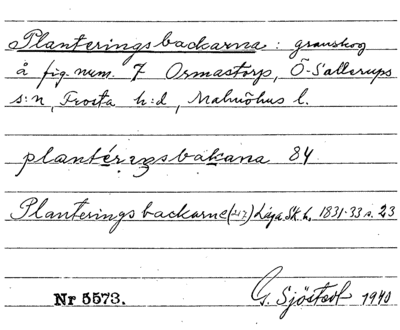 Planteringsbackarna: granskog
å fig. num. 7 Ormastorp, Ö-Sallerups
s:n, Frosta h:d, Malmöhus l.
plantéringsbakana 84
Planteringsbackarne (217) Läga Sk. L. 1831-33 s. 23
Nr 5573. G. Sjöstedt 1940